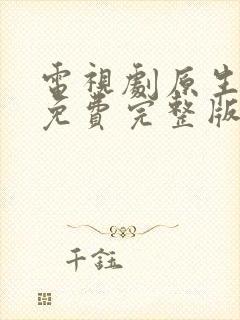 電視劇原生
免費完整版
千鈺